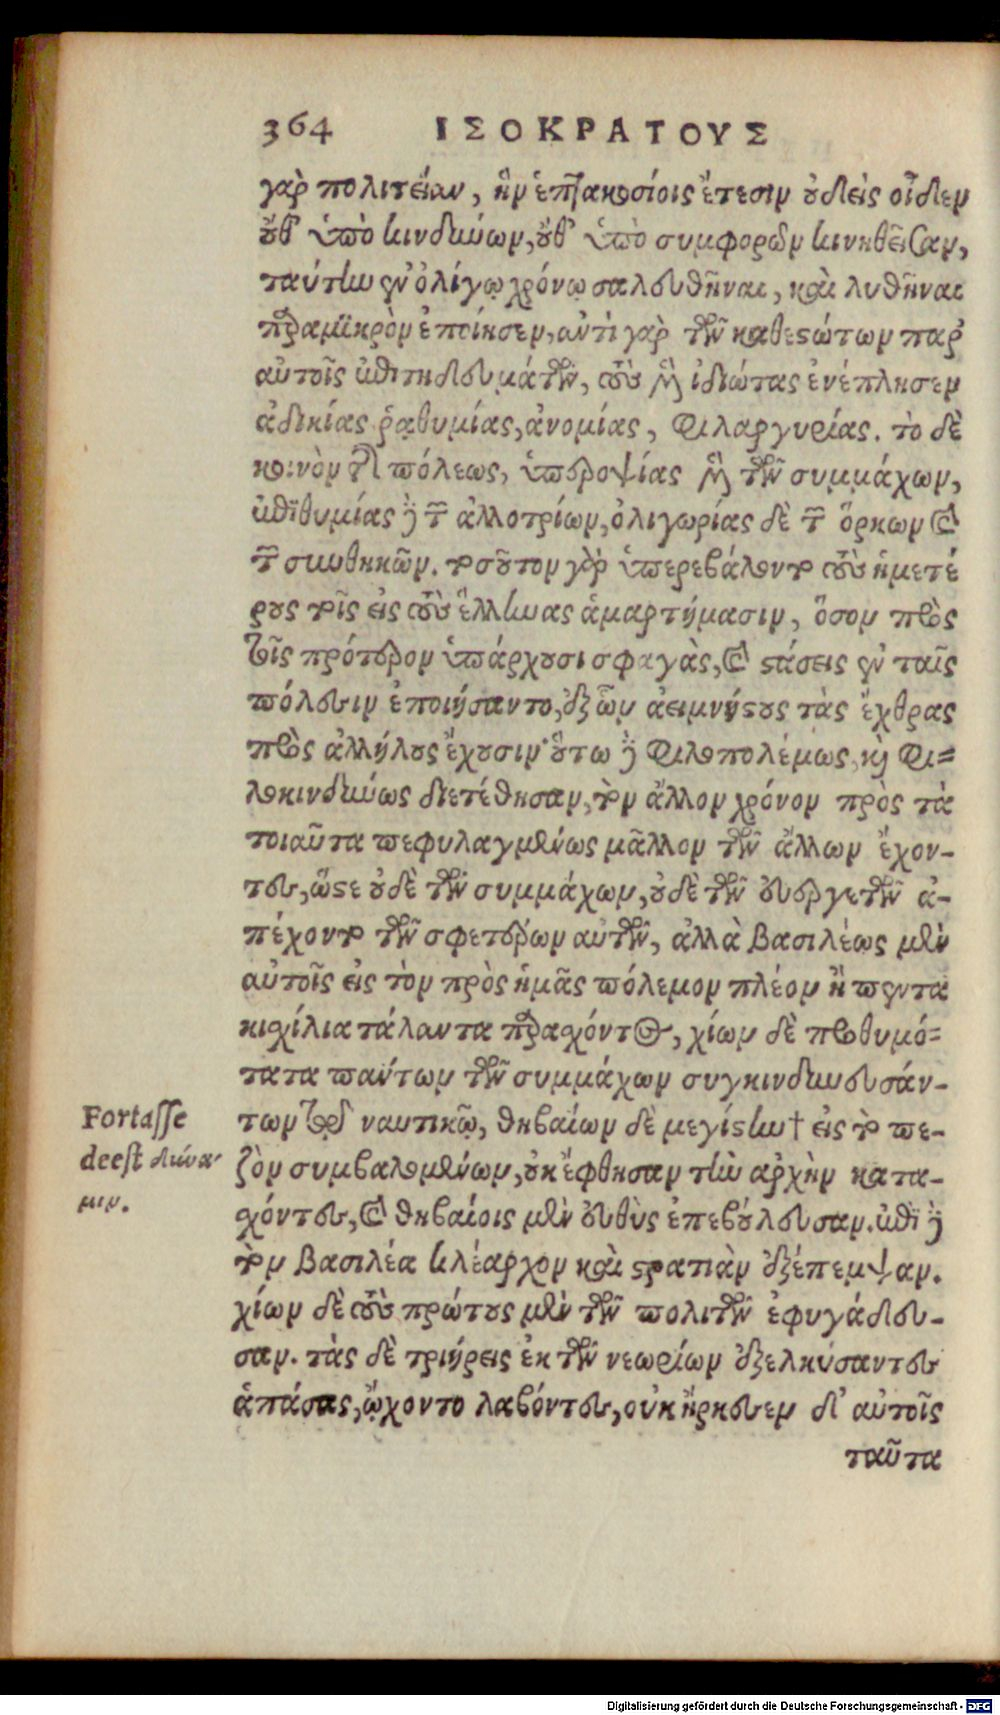 364 ΙΣΟΚΡΑΤΟΥΣ
γὰρ πολιτείαν, ἣν ἑπτακοσίοις ἔτεσιν οὐδεὶς οἶδεν
οὔθ' ὑπὸ κινδύνων, οὔθ' ὑπὸ συμφορῶν κινηθεῖσαν,
ταύτην ἐν ὀλίγῳ χρόνῳ σαλευθῆναι, καὶ λυθῆναι
παραμικρὸν ἐποίησεν, ἀντὶ γὰρ τῶν καθεστώτων παρ'
αὐτοῖς ἐπιτηδευμάτων, τοὺς μὲν ἰδιώτας ἐνέπλησεν
ἀδικίας ῥαθυμίας, ἀνομίας, φιλαργυρίας. τὸ δὲ
κοινὸν τῆς πόλεως, ὑπεροψίας μὲν τῶν συμμάχων,
ἐπιθυμίας δὲ τῶν ἀλλοτρίων, ὀλιγωρίας δὲ τῶν ὅρκων καὶ
τῶν συνθηκῶν. τοσοῦτον γὰρ ὑπερεβάλοντο τοὺς ἡμετέ
ρους τοῖς εἰς τοὺς ἕλληνας ἁμαρτήμασιν, ὅσον πρὸς
τοῖς πρότερον ὑπάρχουσι σφαγὰς, καὶ στάσεις ἐν ταῖς
πόλεσιν ἐποιήσαντο, ἐξ ὧν ἀειμνήστους τὰς ἔχθρας
πρὸς ἀλλήλους ἔχουσιν· οὕτω δὲ φιλοπολέμως, καὶ φι=
λοκινδύνως διετέθησαν, τὸν ἄλλον χρόνον πρὸς τὰ
τοιαῦτα πεφυλαγμένως μᾶλλον τῶν ἄλλων ἔχον-
τες, ὥστε οὐδὲ τῶν συμμάχων, οὐδὲ τῶν εὐεργετῶν ἀ-
πέχοντο τῶν σφετέρων αὐτῶν, ἀλλὰ βασιλέως μὲν
αὐτοῖς εἰς τὸν πρὸς ἡμᾶς πόλεμον πλέον ἢ πεντα
κιχίλια τάλαντα παραχόντος, χίων δὲ προθυμό=
τατα πάντων τῶν συμμάχων συγκινδυνευσάν-
των τοῦ ναυτικῷ, θηβαίων δὲ μεγίστην† εἰς τὸ πε-
ζὸν συμβαλομένων, οὐκ ἔφθησαν τὴν ἀρχὴν κατα-
χόντες, καὶ θηβαίοις μὲν εὐθὺς ἐπεβούλευσαν. ἐπὶ δὲ
τὸν βασιλέα κλέαρχον καὶ στρατιὰν ἐξέπεμψαν.
χίων δὲ τοὺς πρώτους μὲν τῶν πολιτῶν ἐφυγάδευ-
σαν. τὰς δὲ τριήρεις ἐκ τῶν νεωρίων ἐξελκύσαντες
ἁπάσας, ᾤχοντο λαβόντες, οὐκ ἤρκεσεν δ' αὐτοῖς
ταῦτα
Fortasse
deest δύνα-
μιν.
Digitalisierung gefördert durch die Deutsche Forschungsgemeinschaft - DFG